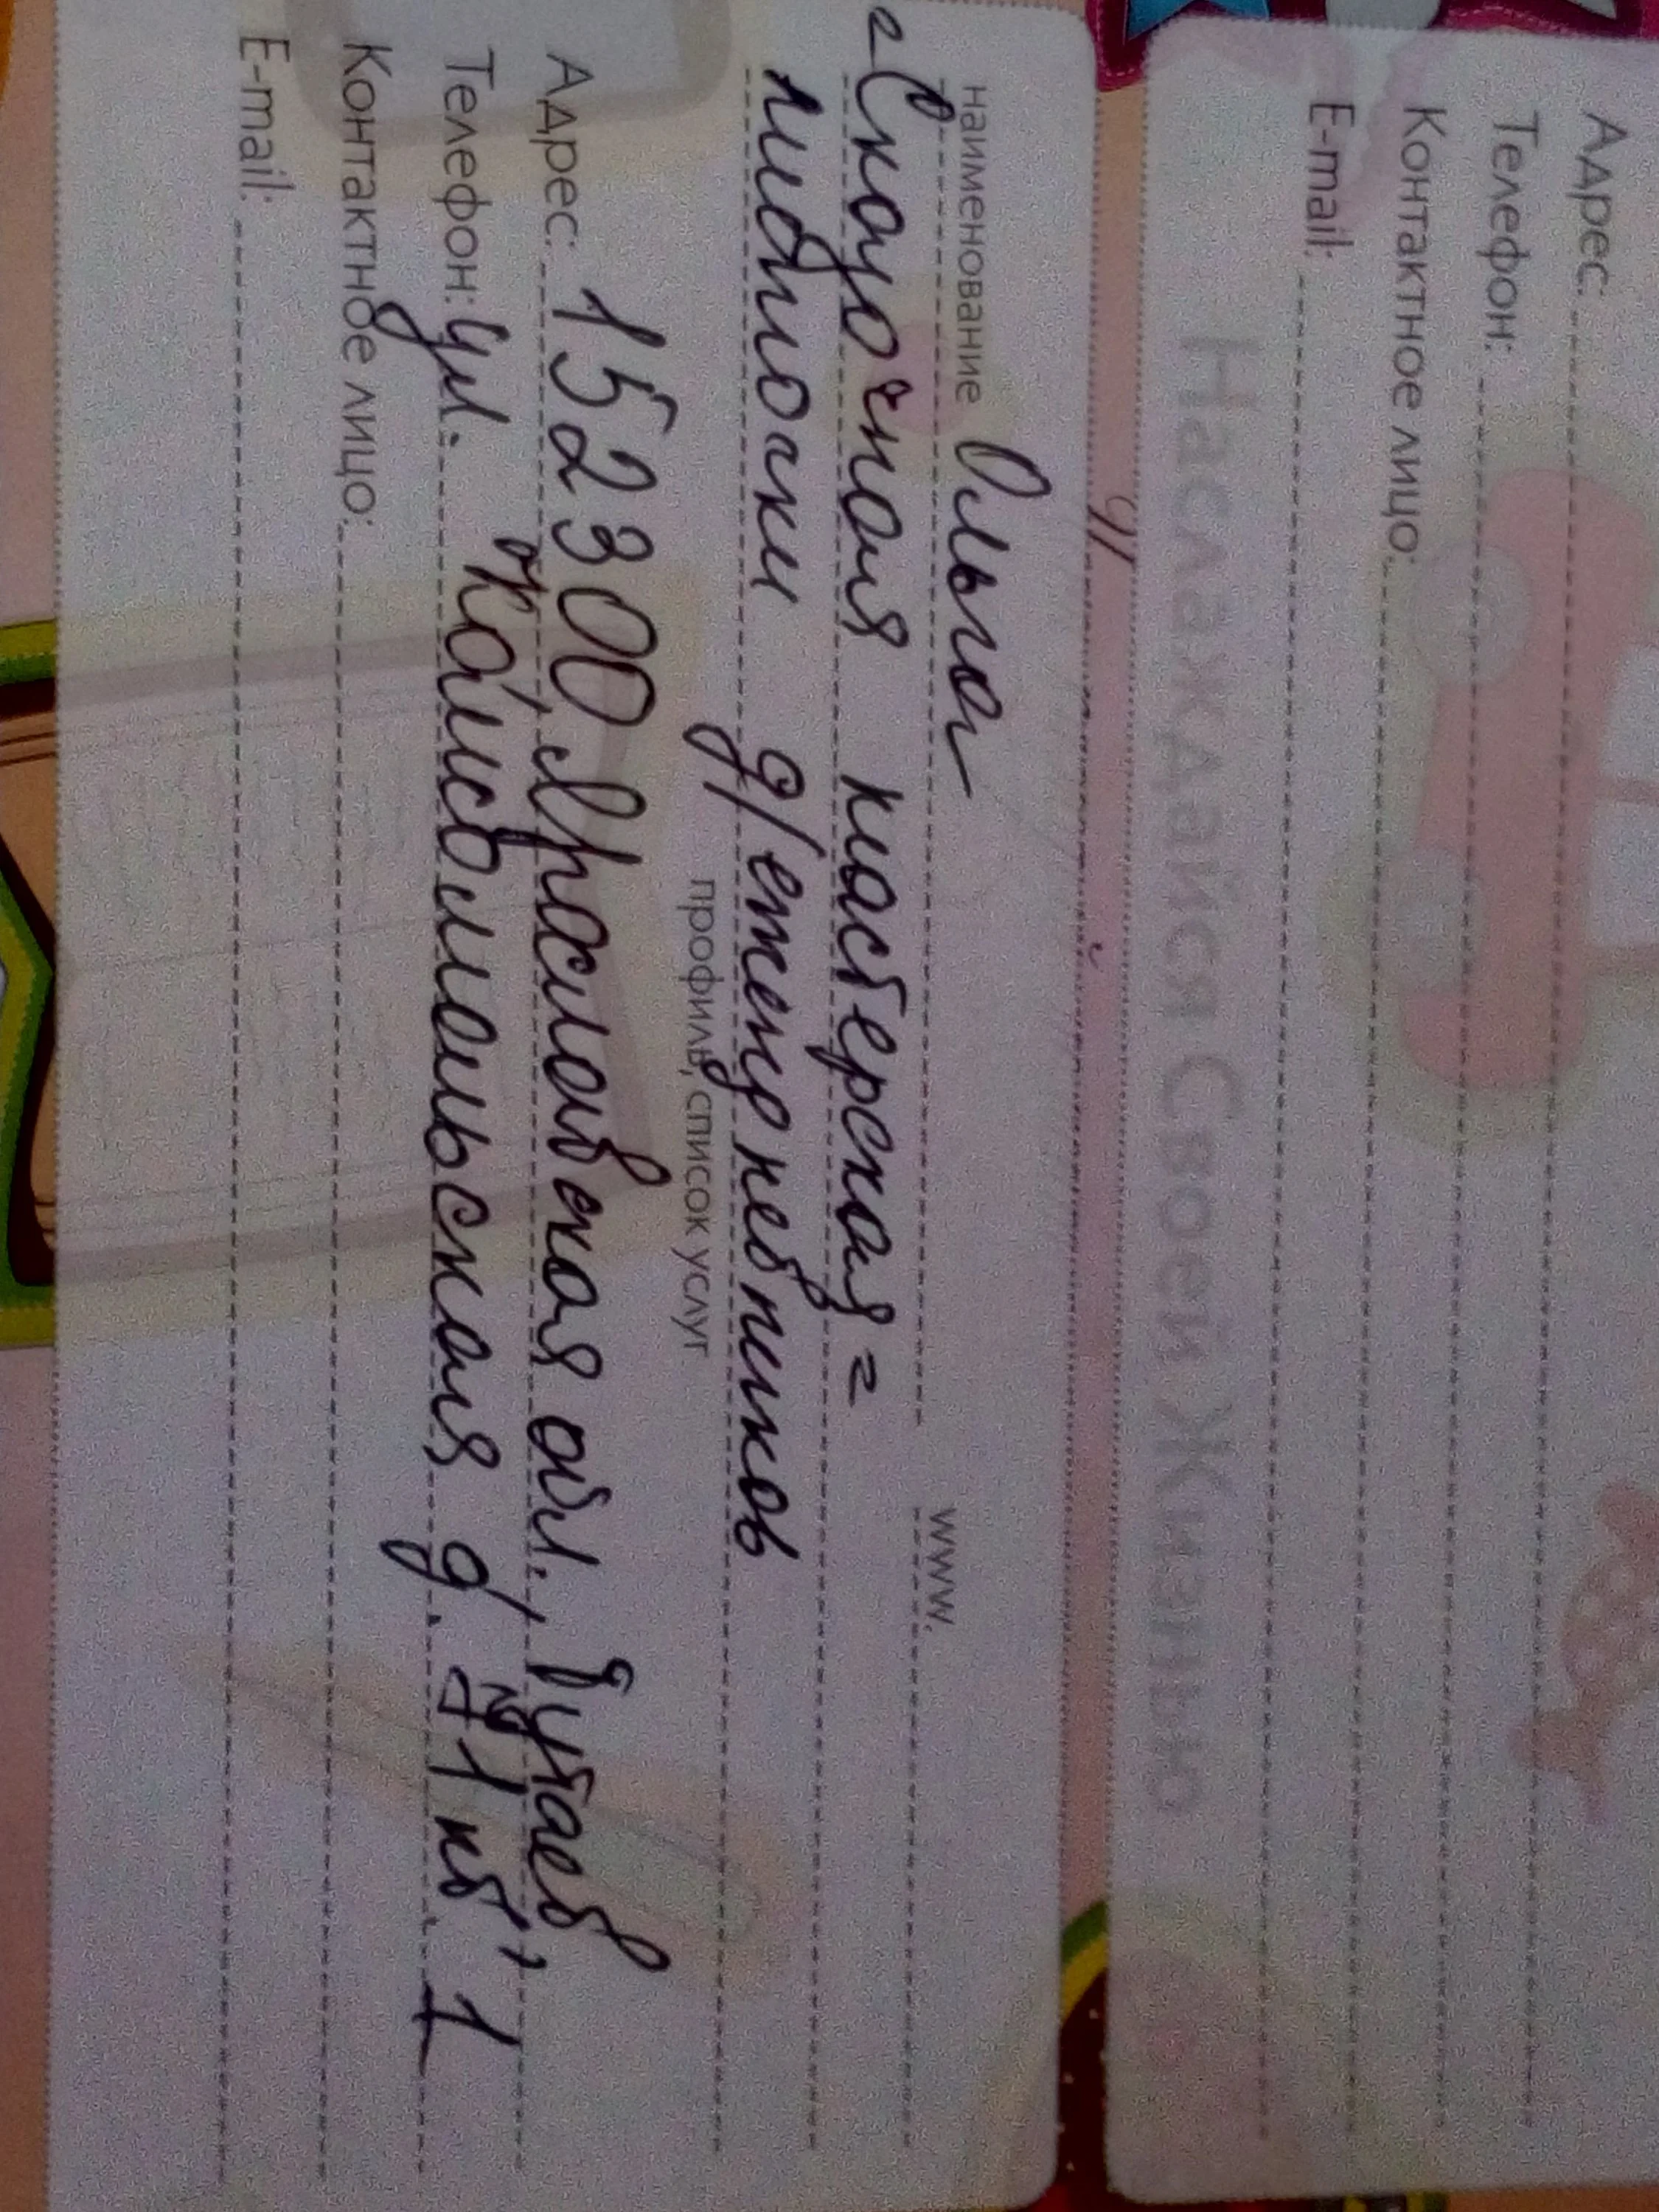 Адрес:
Телефон:
Контактное лицо:
E-mail:
Наслаждайся Своей Жизнью
наименование Ольга www.
=Сказочная мастерская=
листочки д/ежедневников
профиль, список услуг
Адрес: 152300, Ярославская обл., Тутаев
Телефон: ул. Комсомольская д. 71 кв. 1
Контактное лицо:
E-mail: